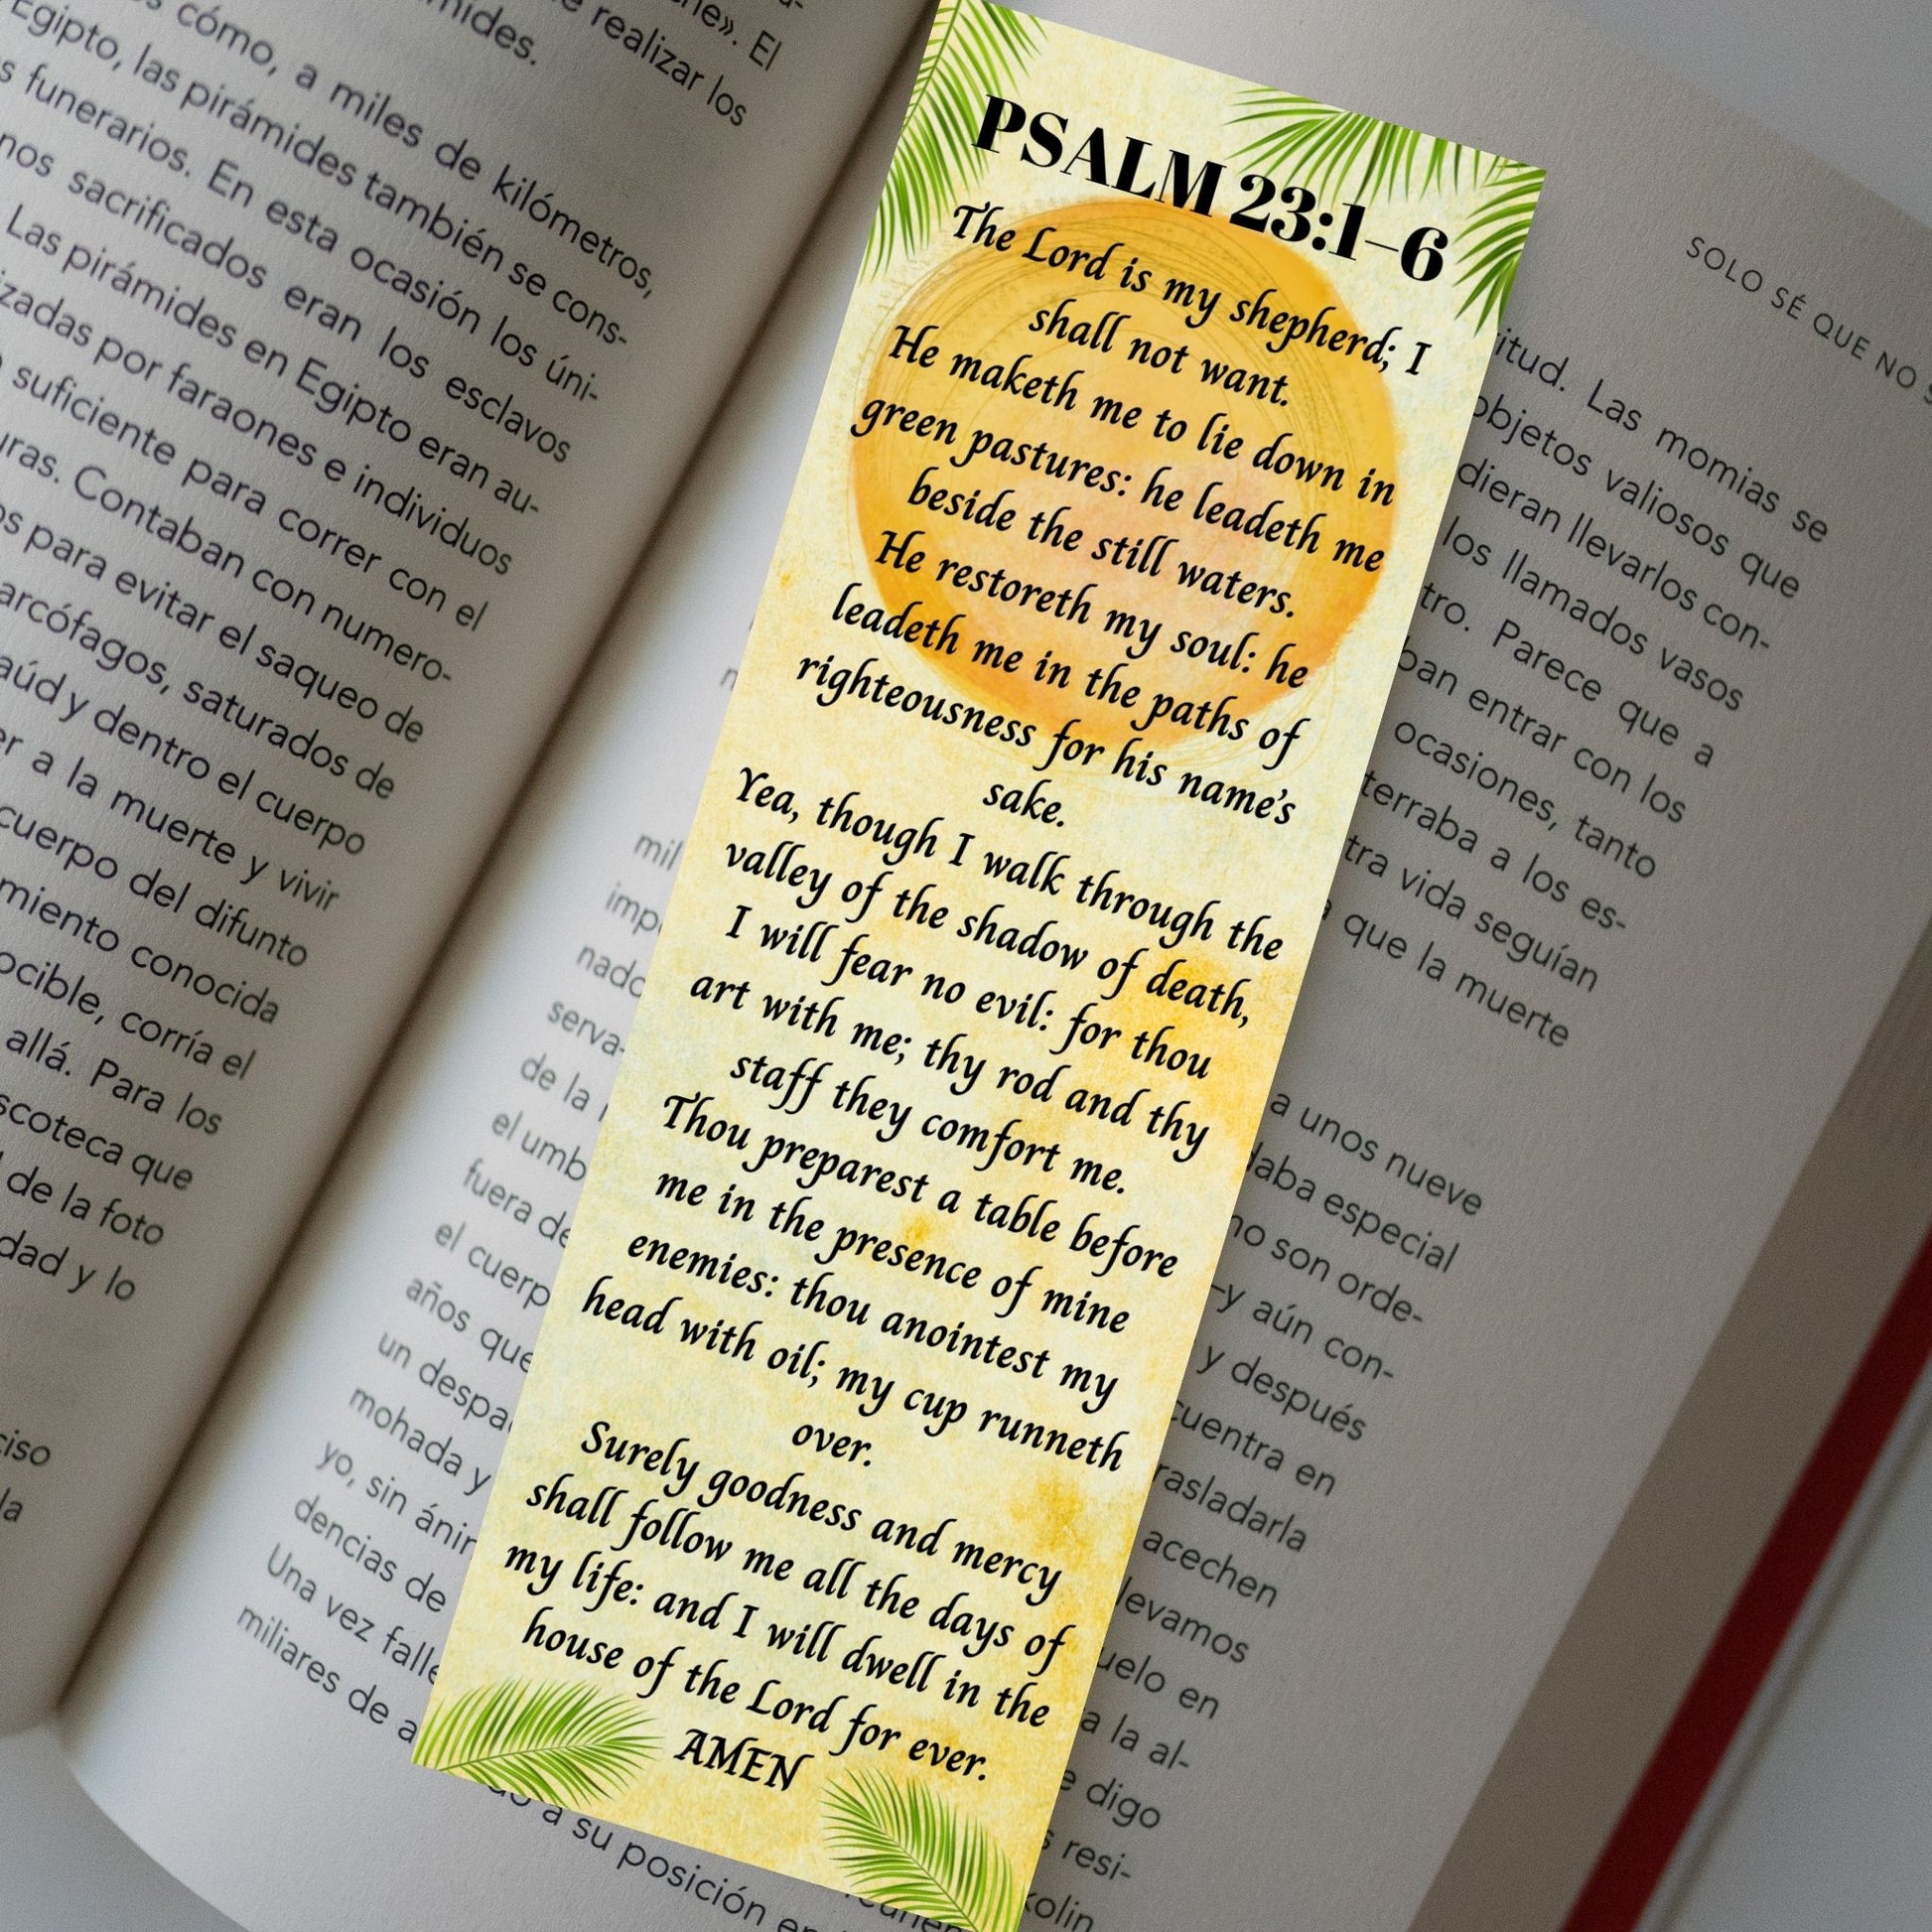 ne». El
mides.
e realizar los
s cómo, a miles de kilómetros,
Egipto, las pirámides también se cons-
s funerarios. En esta ocasión los úni-
nos sacrificados eran los esclavos
Las pirámides en Egipto eran au-
zadas por faraones e individuos
suficiente para correr con el
uras. Contaban con numero-
os para evitar el saqueo de
arcófagos, saturados de
aúd y dentro el cuerpo
er a la muerte y vivir
cuerpo del difunto
miento conocida
ocible, corría el
allá. Para los
scoteca que
de la foto
dad y lo
ciso
la
PSALM 23:1–6
The Lord is my shepherd; I
shall not want.
He maketh me to lie down in
green pastures: he leadeth me
beside the still waters.
He restoreth my soul: he
leadeth me in the paths of
righteousness for his name's
sake.
Yea, though I walk through the
valley of the shadow of death,
I will fear no evil: for thou
art with me; thy rod and thy
staff they comfort me.
Thou preparest a table before
me in the presence of mine
enemies: thou anointest my
head with oil; my cup runneth
over.
Surely goodness and mercy
shall follow me all the days of
my life: and I will dwell in the
house of the Lord for ever.
AMEN
SOLO SÉ QUE NO S
itud. Las momias se
objetos valiosos que
dieran llevarlos con-
los llamados vasos
tro. Parece que a
ban entrar con los
ocasiones, tanto
terraba a los es-
tra vida seguían
a que la muerte
mil
imp
nado
serva-
de la
el umb
fuera de
el cuerp
años que
un despa
mohada y
yo, sin áni
dencias de
Una vez falle
miliares de a
a unos nueve
daba especial
no son orde-
–y aún con-
y después
cuentra en
rasladarla
acechen
levamos
uelo en
a la al-
e digo
s resi-
kolin
do a su posición en